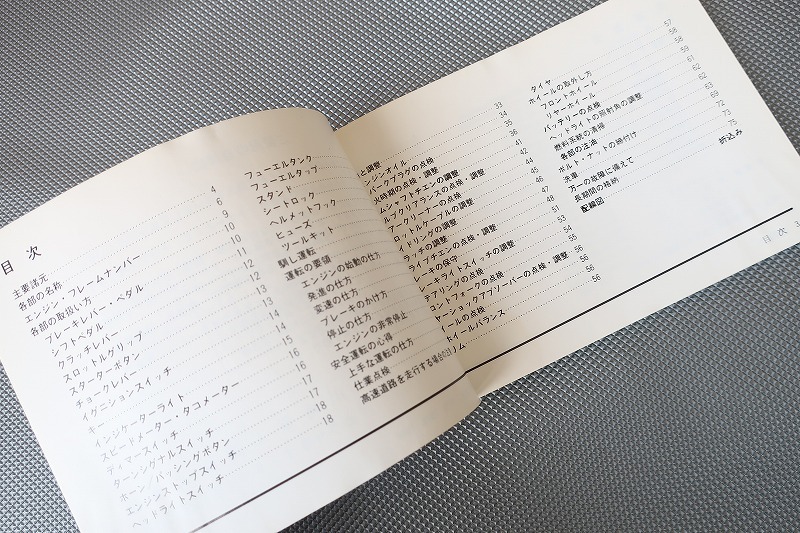 目次
主要諸元
4
各部の名称
6
エンジン・フレームナンバー
9
各部の取扱い方
10
ブレーキレバー・ペダル
10
シフトペダル
11
クラッチレバー
12
スロットルグリップ
12
スターターボタン
13
チョークレバー
13
イグニションスイッチ
14
キー
15
インジケーターライト
16
スピードメーター・タコメーター
16
ディマースイッチ
17
ターンシグナルスイッチ
17
ホーン／パッシングボタン
18
エンジンストップスイッチ
18
ヘッドライトスイッチ
フューエルタンク
フューエルタップ
スタンド
シートロック
ヘルメットフック
ヒューズ
ツールキット
馴し運転
運転の要領
エンジンの始動の仕方
発進の仕方
変速の仕方
ブレーキのかけ方
停止の仕方
エンジンの非常停止
安全運転の心得
上手な運転の仕方
仕業点検
高速道路を走行する場合の注
と調整
33
ジンオイル
34
パークプラグの点検
35
火時期の点検・調整
36
ムシャフトチェンの調整
41
ルブクリアランスの点検・調整
42
アークリーナーの点検
44
ロットルケーブルの調整
45
イドリングの調整
46
ラッチの調整
47
ライブチェンの点検・調整
48
レーキの保守
51
レーキライトスイッチの調整
53
テアリングの点検
54
ロントフォークの点検
55
ヤーショックアブソーバーの点検・調整
56
ールの点検
56
ホイールバランス
56
リム
タイヤ
57
ホイールの取外し方
58
フロントホイール
58
リヤーホイール
59
バッテリーの点検
61
ヘッドライトの照射角の調整
62
燃料系統の清掃
62
各部の注油
63
ボルト・ナットの締付け
69
洗車
72
万一の故障に備えて
73
長期間の格納
75
配線図
折込み
目次 3